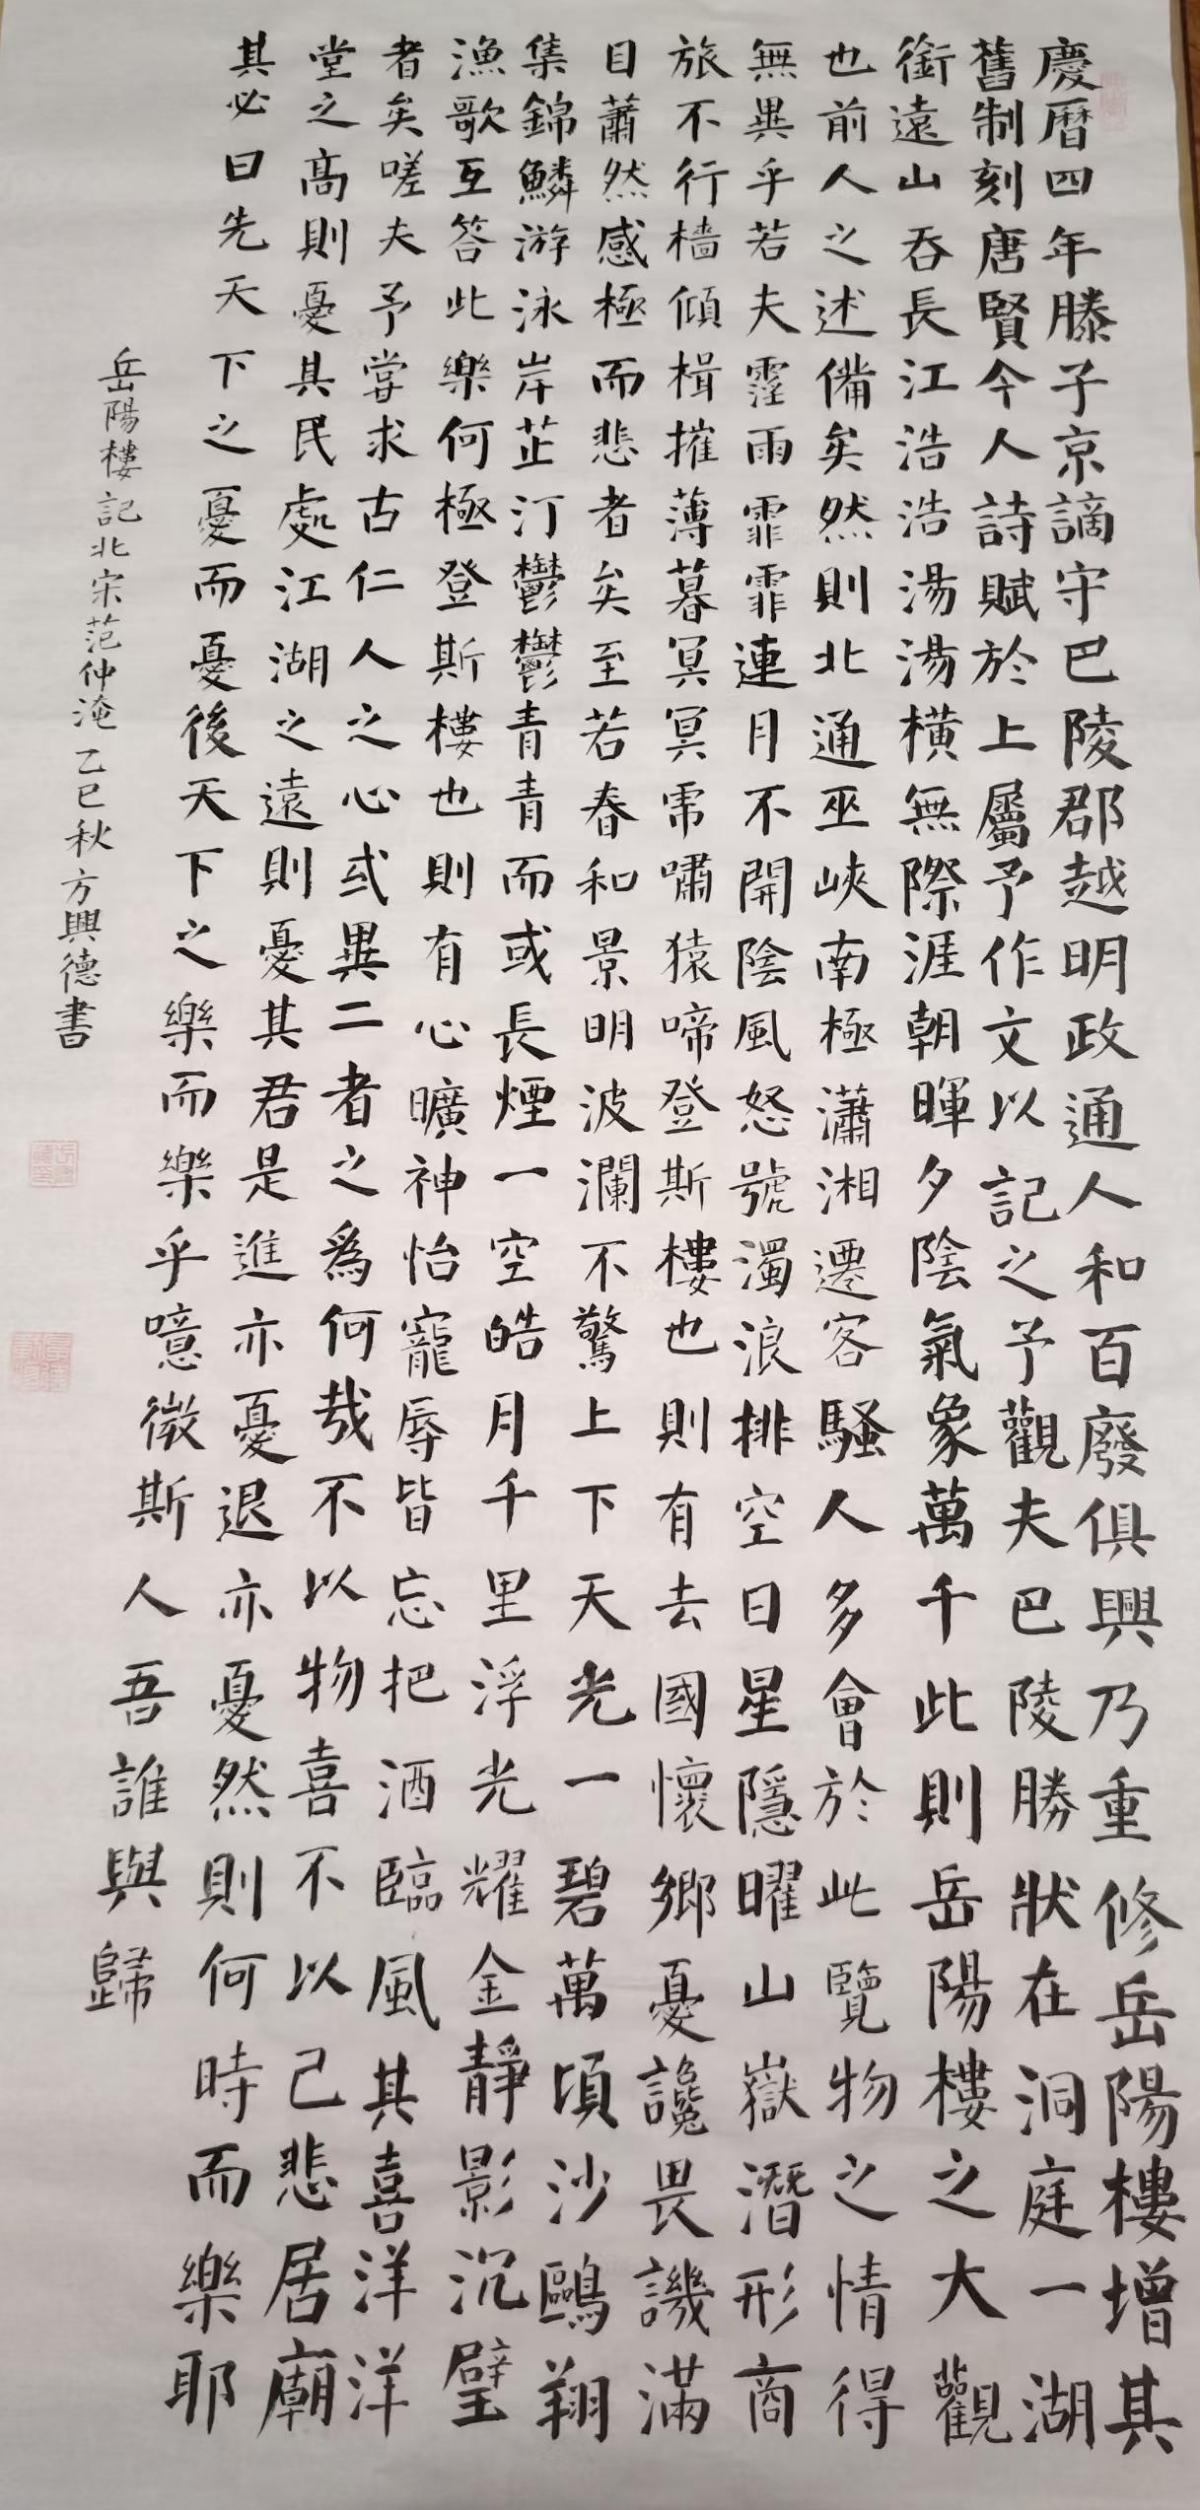 慶曆四年滕子京謫守巴陵郡越明政通人和百廢俱興乃重修岳陽樓增其
舊制刻唐賢今人詩賦於上屬予作文以記之予觀夫巴陵勝狀在洞庭一湖
銜遠山吞長江浩浩湯湯橫無際涯朝暉夕陰氣象萬千此則岳陽樓之大觀
也前人之述備矣然則北通巫峽南極瀟湘遷客騷人多會於此覽物之情得
無異乎若夫霪雨霏霏連月不開陰風怒號濁浪排空日星隱曜山嶽潛形商
旅不行檣傾楫摧薄暮冥冥虎嘯猿啼登斯樓也則有去國懷鄉憂讒畏譏滿
目蕭然感極而悲者矣至若春和景明波瀾不驚上下天光一碧萬頃沙鷗翔
集錦鱗游泳岸芷汀鬱鬱青青而或長煙一空皓月千里浮光耀金靜影沉璧
漁歌互答此樂何極登斯樓也則有心曠神怡寵辱皆忘把酒臨風其喜洋洋
者矣嗟夫予嘗求古仁人之心或異二者之為何哉不以物喜不以己悲居廟
堂之高則憂其民處江湖之遠則憂其君是進亦憂退亦憂然則何時而樂耶
其必曰先天下之憂而憂後天下之樂而樂乎噫微斯人吾誰與歸
岳陽樓記北宋范仲淹乙巳秋方興德書